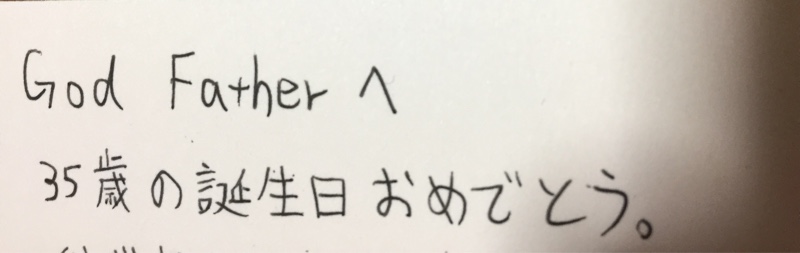 God Father へ
35歳の誕生日おめでとう。